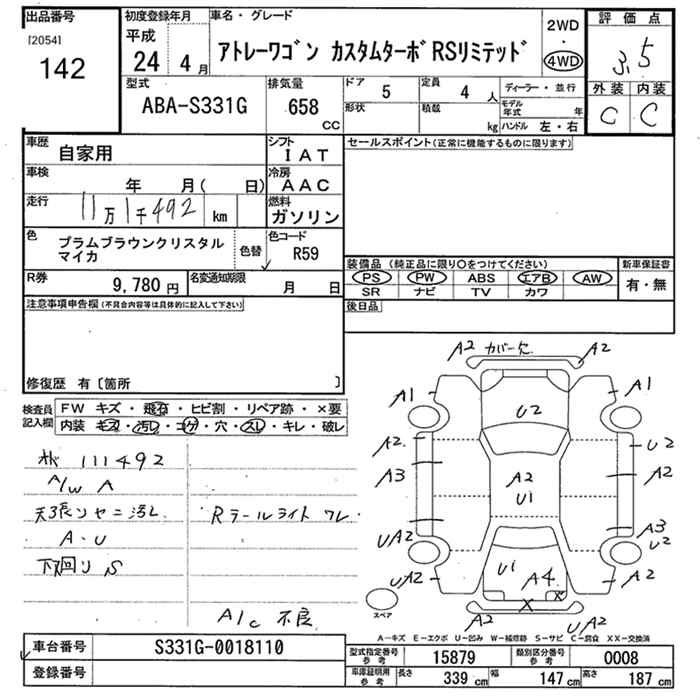 出品番号
[2054]
142
初度登録年月
平成
24年 4月
車名・グレード
アトレーワゴン カスタムターボRSリミテッド
2WD
・
4WD
評価点
3.5
外装 内装
C C
型式
ABA-S331G
排気量
658
CC
ドア
5
定員
4人
形状
積載
kg
ディーラー・並行
モデル年式 年
ハンドル 左・右
車歴
自家用
シフト
IAT
セールスポイント(正常に機能するものに限ります)
車検
年 月( 日)
冷房
AAC
走行
11万1千492 km
燃料
ガソリン
色
プラムブラウンクリスタル
マイカ
色替
色コード
R59
R券
9,780円
名変通知期限
月 日
装備品(純正品に限り○をつけてください)
PS PW ABS エアB AW
SR ナビ TV カワ
新車保証書
有・無
後日品
注意事項申告欄(不具合内容等は具体的に記入して下さい)
修復歴 有〔箇所 〕
検査員
記入欄
FW キズ・飛石・ヒビ割・リペア跡・×要
内装 キズ・汚レ・コゲ・穴・スレ・キレ・破レ
111492
A/W A
天張リヤニ汚レ
A・U
下回りS
Rテールライト ワレ
A/C 不良
A2 カバー欠 A2
A1 A1
U2
A2 U2
A3 A2 A2
U1
A3
UA2 U2
U1 A4
UA2 A2
X X
A2 UA2
スペア
A-キズ E-エクボ U-凹み W-補修跡 S-サビ C-腐食 XX-交換済
車台番号
S331G-0018110
登録番号
型式指定番号
参考
15879
類別区分番号
参考
0008
車庫証明用
参考
長さ
339 cm
幅
147 cm
高さ
187 cm